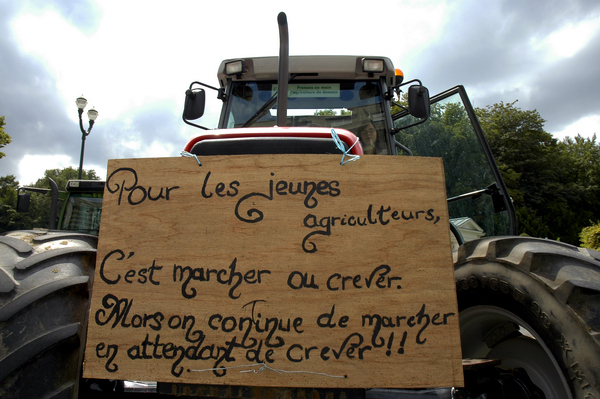 Pour les jeunes
agriculteurs,
C'est marcher ou crever.
Alors on continue de marcher
en attendant de crever !!